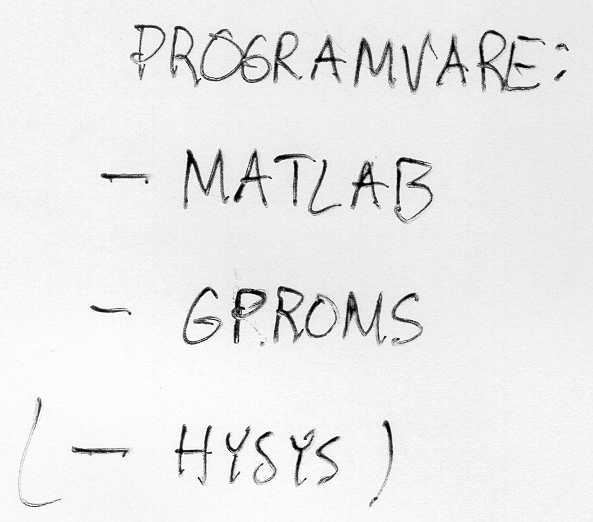 PROGRAMVARE:
- MATLAB
- GPROMS
(- HYSYS)